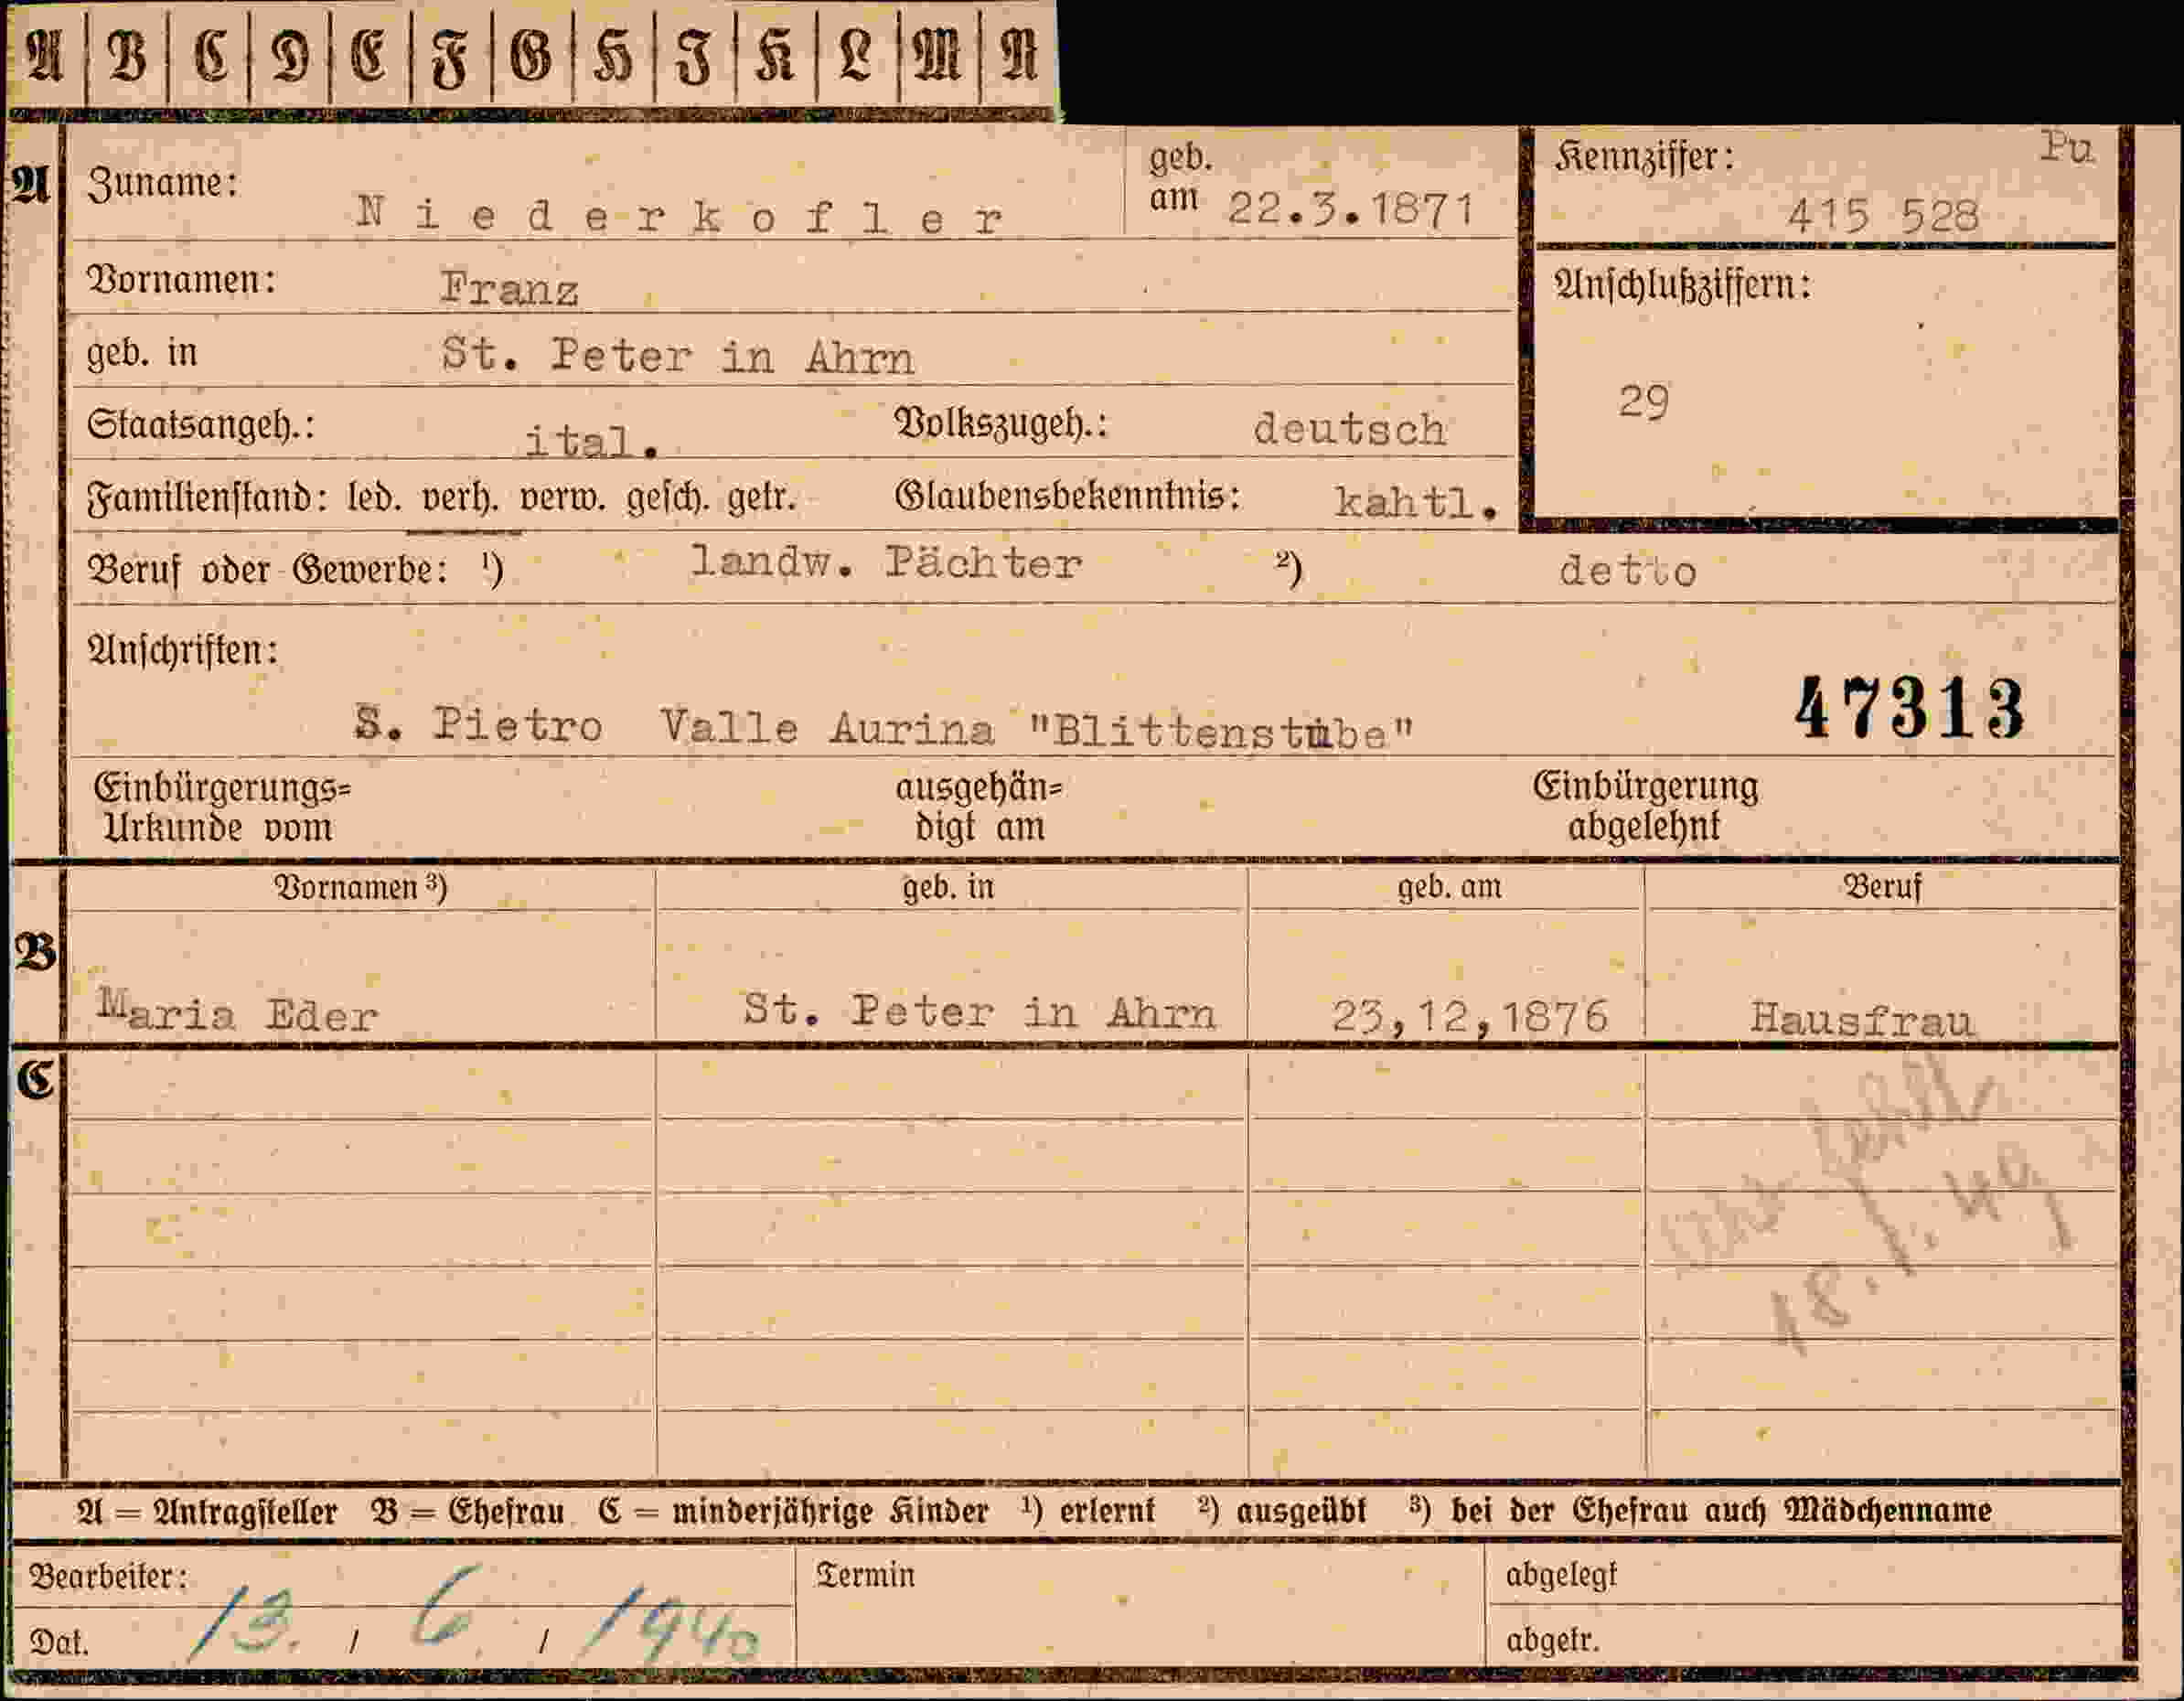 A B C D E F G H I K L M N
A Zuname: Niederkofler geb. am 22.3.1871 Kennziffer: Pu
415 528
Vornamen: Franz Anschlußziffern:
geb. in St. Peter in Ahrn
29
Staatsangeh.: ital. Volkszugeh.: deutsch
Familienstand: led. verh. verw. gesch. getr. Glaubensbekenntnis: kahtl.
Beruf oder Gewerbe: ¹) landw. Pächter ²) detto
Anschriften:
47313
S. Pietro Valle Aurina "Blittenstube"
Einbürgerungs= ausgehän= Einbürgerung
Urkunde vom digt am abgelehnt
Vornamen ³) geb. in geb. am Beruf
B
Maria Eder St. Peter in Ahrn 23,12,1876 Hausfrau
C
fehlt
A = Antragsteller B = Ehefrau C = minderjährige Kinder ¹) erlernt ²) ausgeübt ³) bei der Ehefrau auch Mädchenname
Bearbeiter: Termin abgelegt
Dat. 13. / 6. / 1940 abgetr.